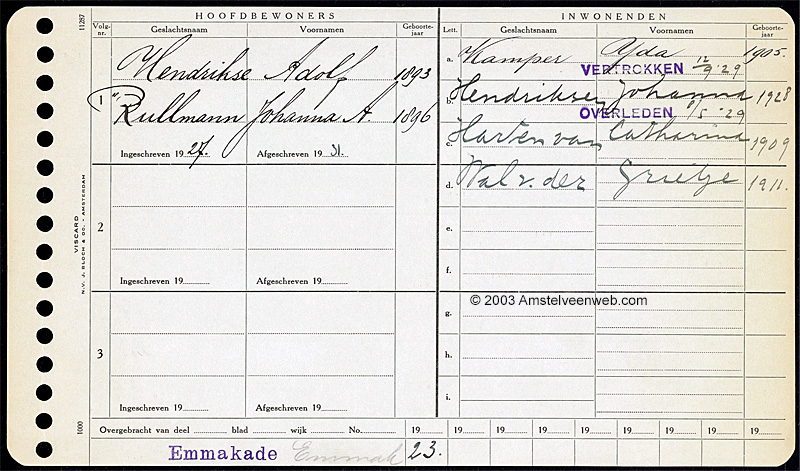 HOOFDBEWONERS
INWONENDEN
Volg-nr.
Geslachtsnaam
Voornamen
Geboorte-jaar
Lett.
Geslachtsnaam
Voornamen
Geboorte-jaar
11287
1
Hendrikse Adolf 1893
Rullmann Johanna A. 1896
Ingeschreven 1927. Afgeschreven 1931.
2
Ingeschreven 19 Afgeschreven 19
3
Ingeschreven 19 Afgeschreven 19
a. Kamper Yda 12/9 '29 1905.
VERTROKKEN
b. Hendrikse Johanna 1928
OVERLEDEN 8/5 '29
c. Harten van Catharina 1909
d. Wal v. der Grietje 1911.
e.
f.
© 2003 Amstelveenweb.com
g.
h.
i.
VISCARD
N.V. J. BLOCH & CO. - AMSTERDAM
1000
Overgebracht van deel blad wijk No. 19 19 19 19 19 19 19 19 19 19
Emmakade Emmak 23.